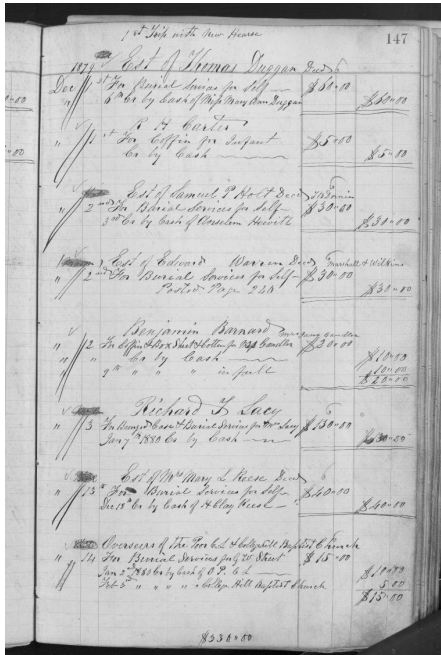 1st Trip with New Hearse
147
1879 Est of Thomas Duggan Decd
Dec 1st For Burial Services for Self $60"00
" 6th Cr by Cash of Miss Mary Ann Duggan $60"00
R H Carter
" 1st For Coffin for Infant $5"00
Cr by Cash $5"00
Est of Samuel P Holt Decd
" 2nd For Burial Services for Self $30"00
3rd Cr by Cash of Anselm Hewitt $30"00
Est of Edward Warren Decd Marshall & Wilkins
" 2nd For Burial Services for Self $30"00
Posted Page 240 $30"00
Benjamin Barnard
" 12 For Coffin & Box Candler $20"00
" " Cr by Cash $10"00
" 9th " " " in full 10"00
$20"00
Richard F Lacy
" 13 For Case & Burial Services for Lacy $130"00
Jany 7th 1880 Cr by Cash $130"00
Est of Mrs Mary L Reese Decd
" 13th For Burial Services for Self $40"00
Dec 15th Cr by Cash of H Clay Reese $40"00
Overseers of The Poor C.L. & College Hill Baptist Church
" 14 For Burial Services for Street $15"00
Jan 2nd 1880 Cr by Cash of O P C L $10"00
Feb 3rd " " " " College Hill Baptist Church 5"00
$15"00
$330"00